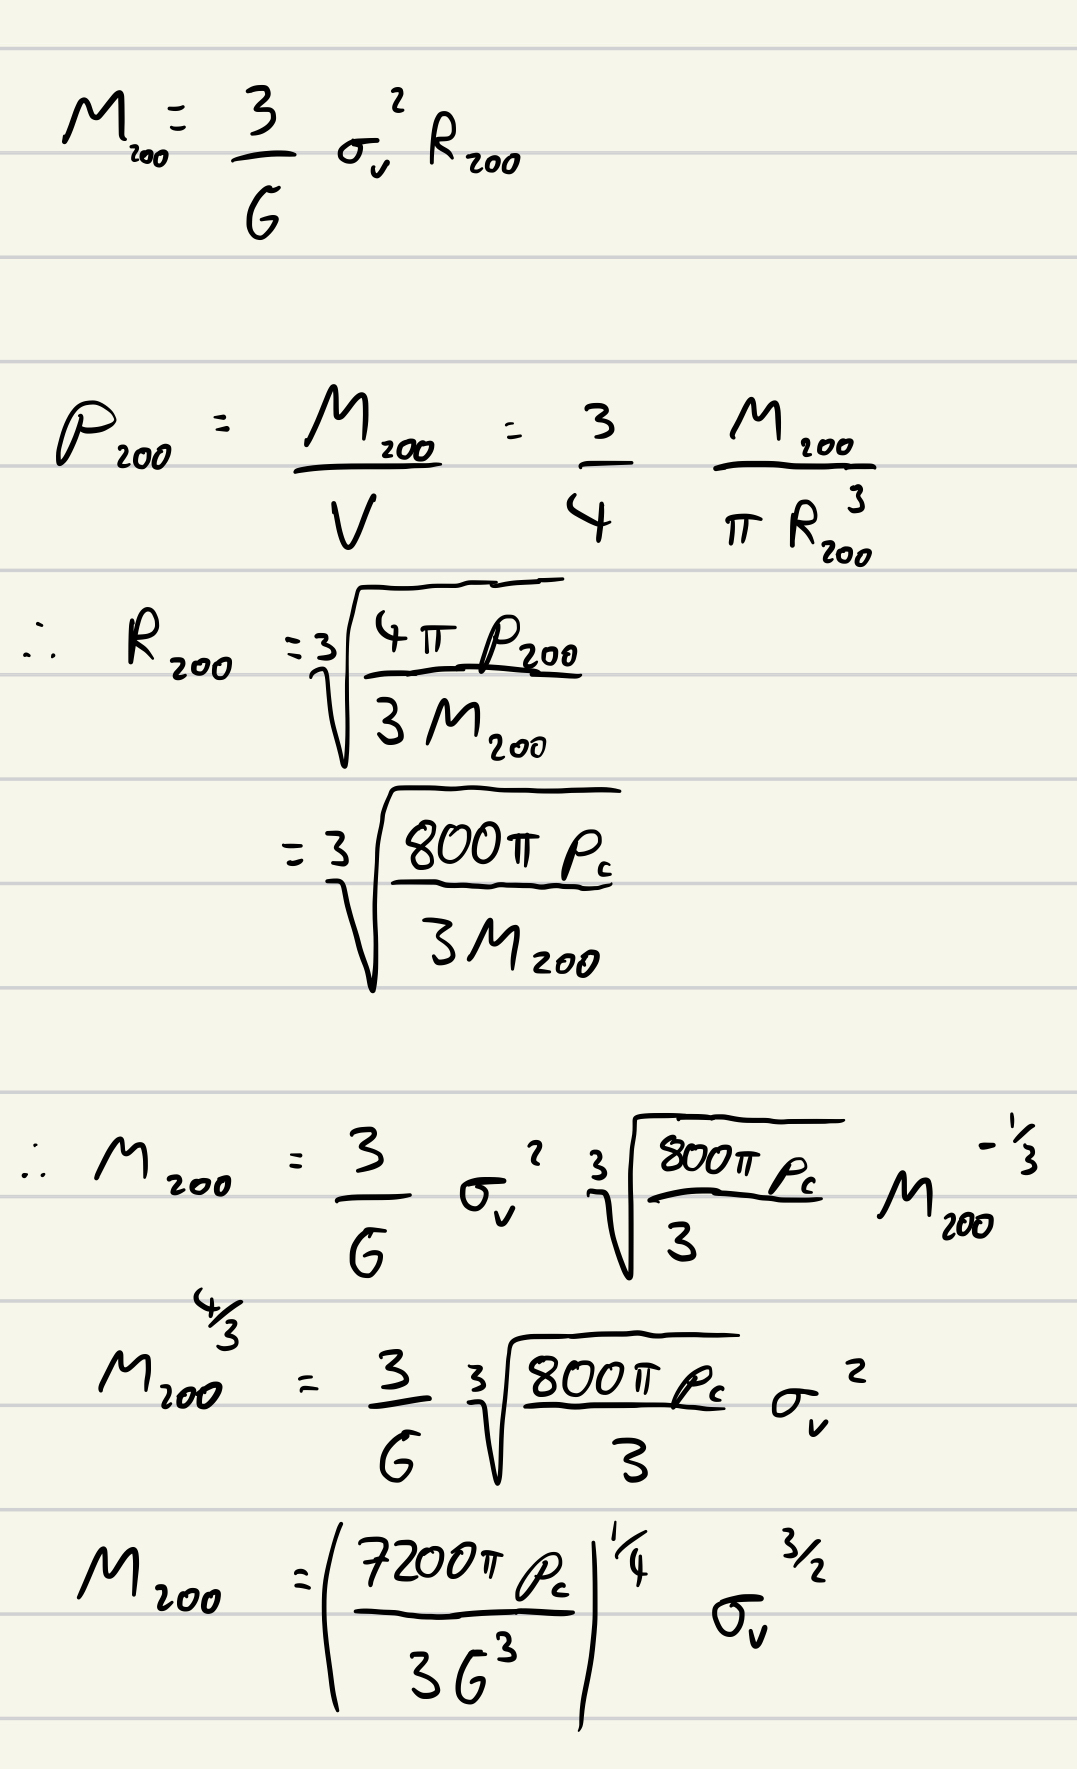 M₂₀₀ = 3/G σᵥ² R₂₀₀
ρ₂₀₀ = M₂₀₀/V = 3/4 M₂₀₀/(π R₂₀₀³)
∴ R₂₀₀ = ∛(4π ρ₂₀₀ / 3 M₂₀₀)
= ∛(800π ρ_c / 3 M₂₀₀)
∴ M₂₀₀ = 3/G σᵥ² ∛(800π ρ_c / 3) M₂₀₀^(-1/3)
M₂₀₀^(4/3) = 3/G ∛(800π ρ_c / 3) σᵥ²
M₂₀₀ = (7200π ρ_c / 3G³)^(1/4) σᵥ^(3/2)